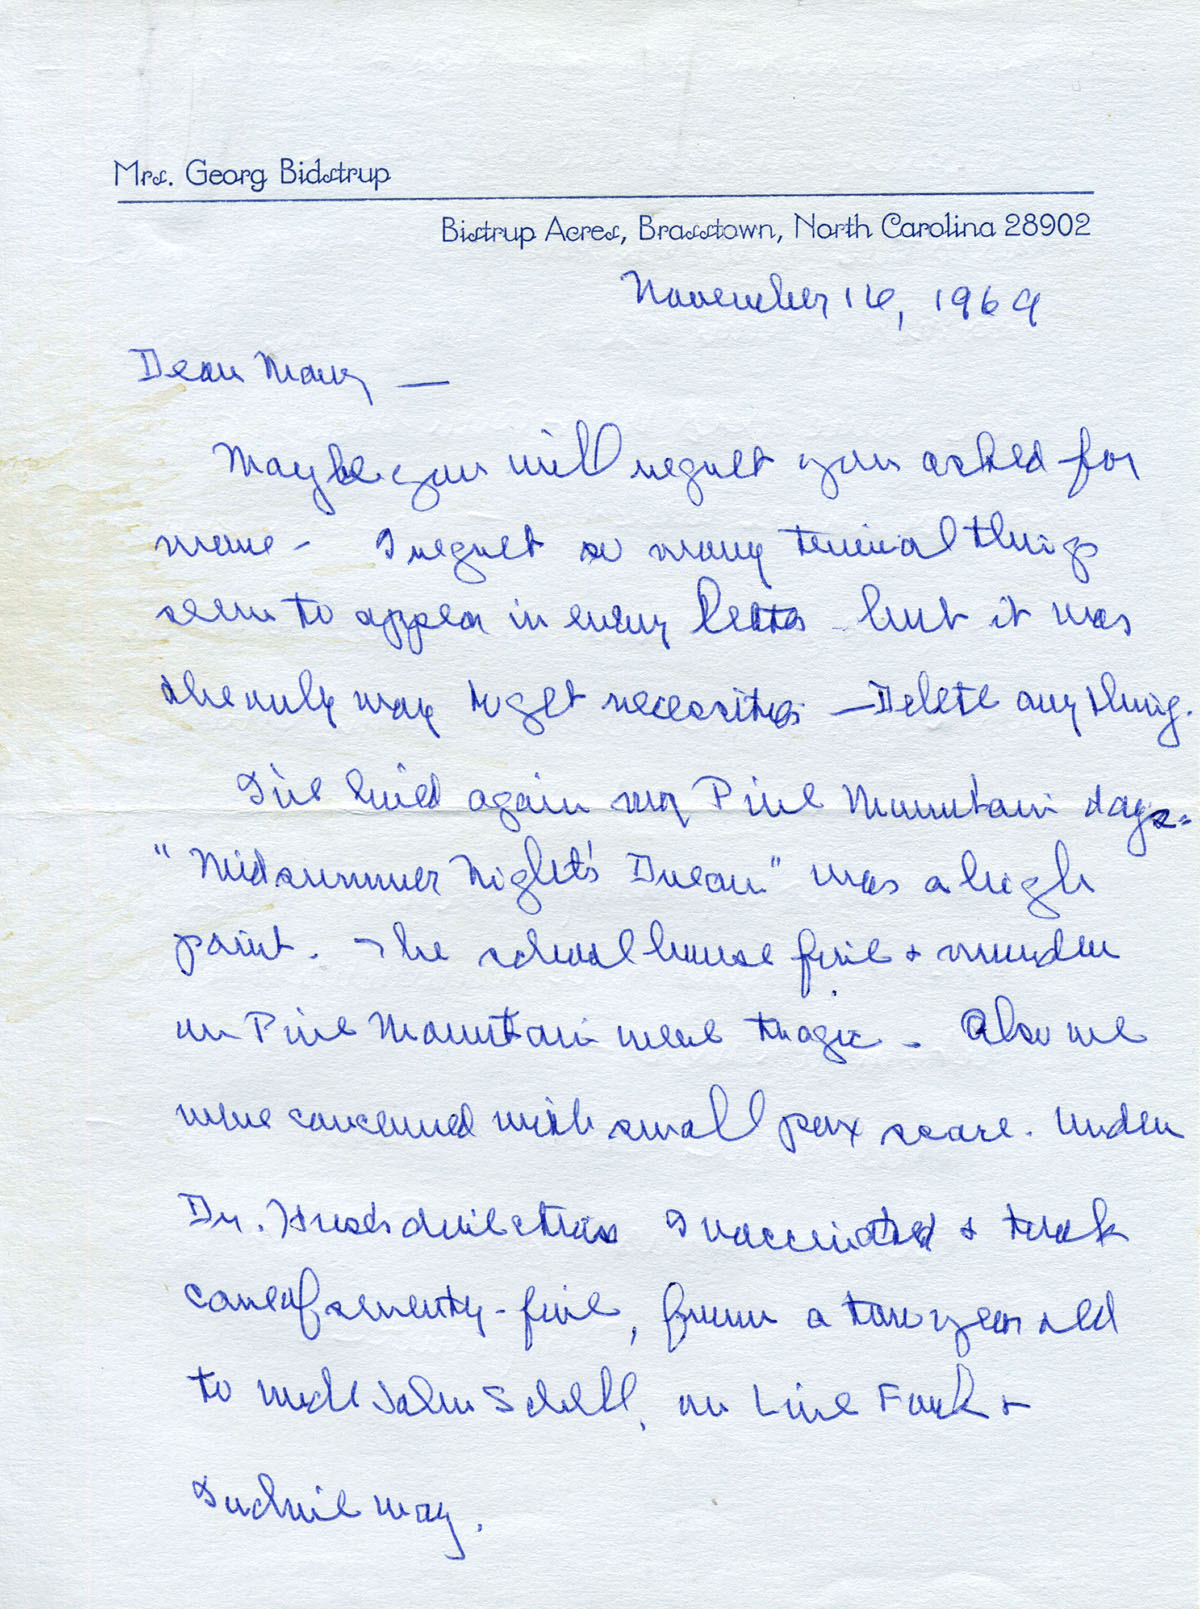 Mrs. Georg Bidstrup
Bistrup Acres, Brasstown, North Carolina 28902
November 16, 1969
Dear Mary —
Maybe you will regret you asked for
more - I regret so many trivial things
seem to appear in every letter - but it was
the only way to get necessities — Delete anything.
I've lived again my Pine Mountain days -
"Midsummer Night's Dream" was a high
point. The school house fire + murder
on Pine Mountain were tragic - Also we
were concerned with small pox scare. Under
Dr. directions I vaccinated + took
care of seventy-five, from a two year old
to Uncle John Shell, on Line Fork +
way.